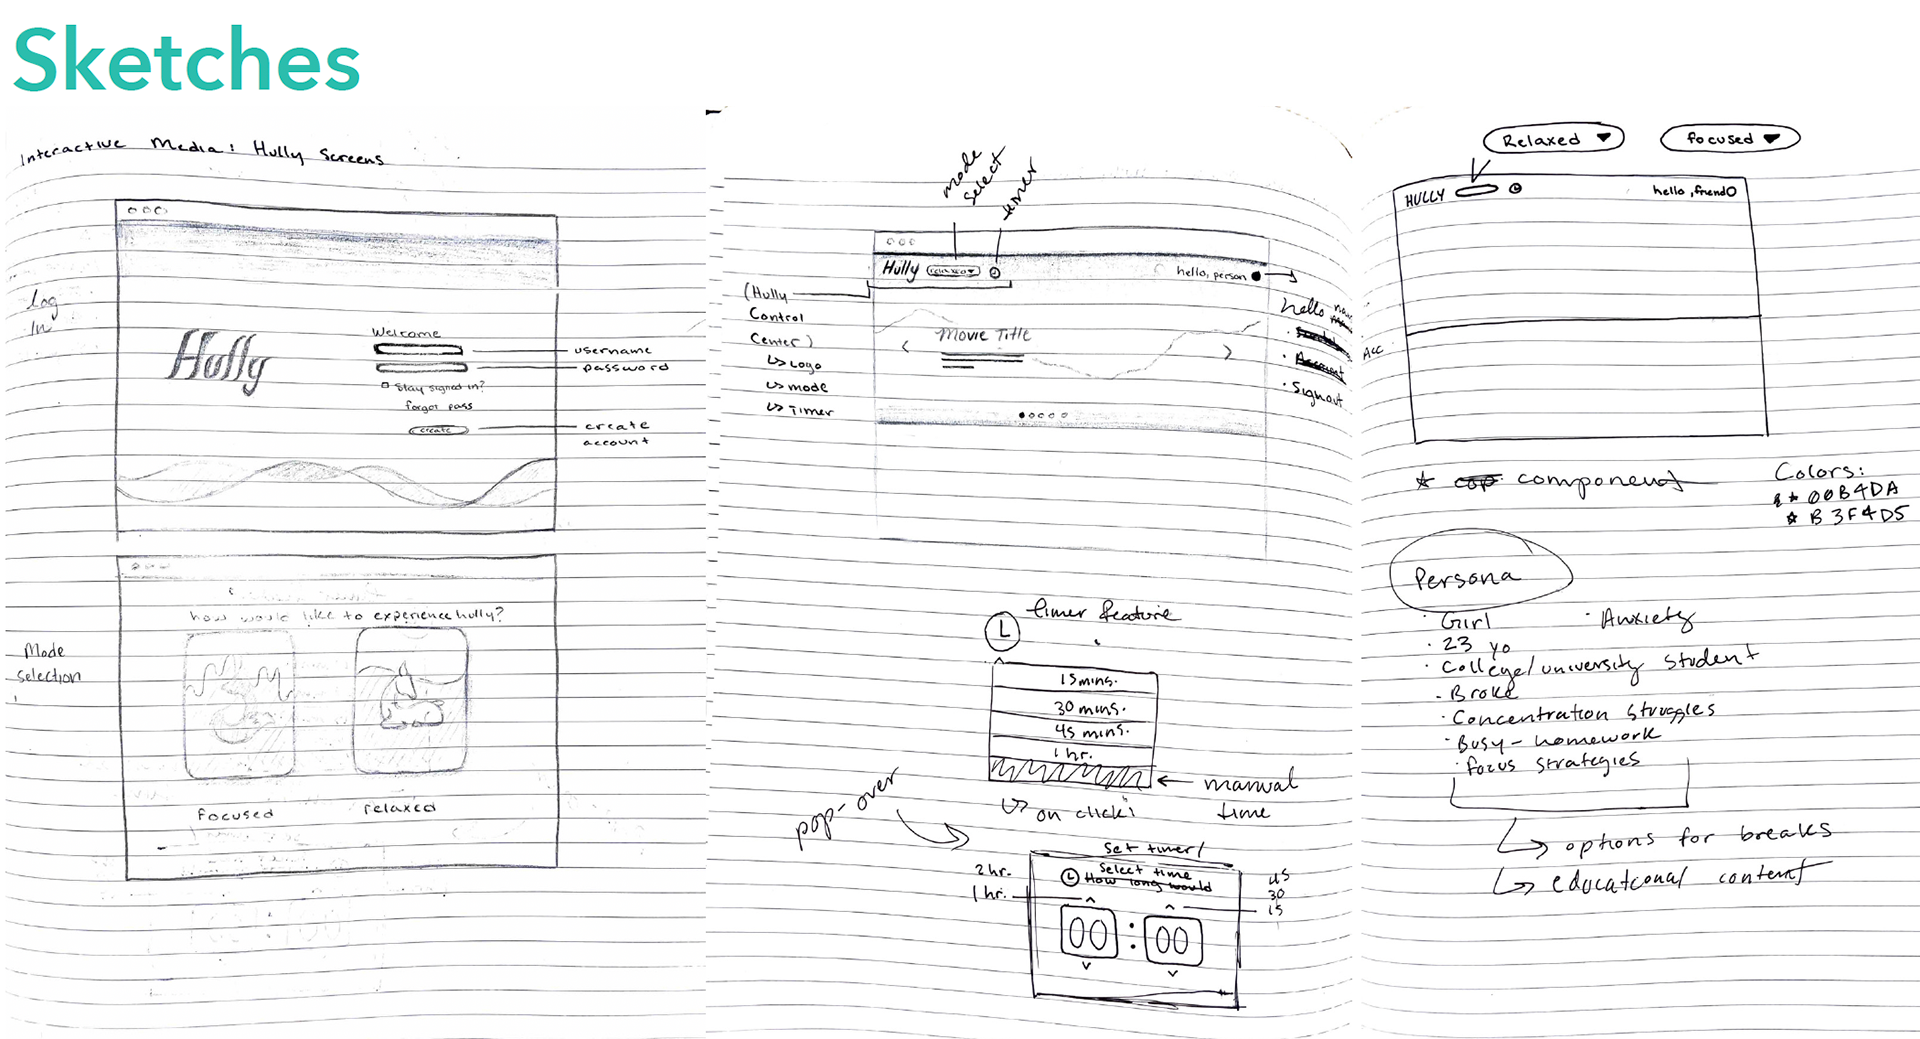 Sketches
Interactive Media: Hully Screens
Log
In
Hully
Welcome
username
password
Stay signed in?
forgot pass
create
create
account
how would like to experience hully?
Mode
selection
focused
relaxed
mode
select
timer
Hully
relaxed
hello, person
(Hully
Control
Center)
Logo
mode
Timer
Movie Title
hello
Account
Signout
timer feature
15 mins.
30 mins.
45 mins.
1 hr.
manual
time
on click
pop-over
Set timer
Select time
How long would
2 hr.
1 hr.
45
30
15
00 : 00
Relaxed
focused
HULLY
hello, friend
Acc
component
Colors:
00B4DA
B3F4D5
Persona
· Girl
· Anxiety
· 23 yo
· College/university student
· Broke
· Concentration struggles
· Busy - homework
· focus strategies
options for breaks
educational content